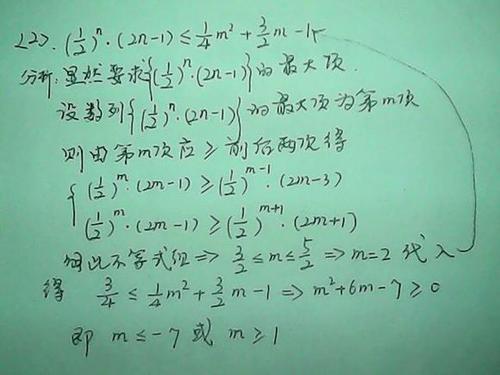 (2). (1/2)^n · (2n-1) ≤ 1/4 m² + 3/2 m - 1
分析: 显然要求{(1/2)^n · (2n-1)}的最大项.
设数列{(1/2)^n · (2n-1)}的最大项为第m项
则由第m项应 ≥ 前后两项得
{ (1/2)^m · (2m-1) ≥ (1/2)^{m-1} · (2m-3)
(1/2)^m · (2m-1) ≥ (1/2)^{m+1} · (2m+1)
此不等式组 ⇒ 3/2 ≤ m ≤ 5/2 ⇒ m=2 代入
得 3/4 ≤ 1/4 m² + 3/2 m - 1 ⇒ m²+6m-7 ≥ 0
即 m ≤ -7 或 m ≥ 1